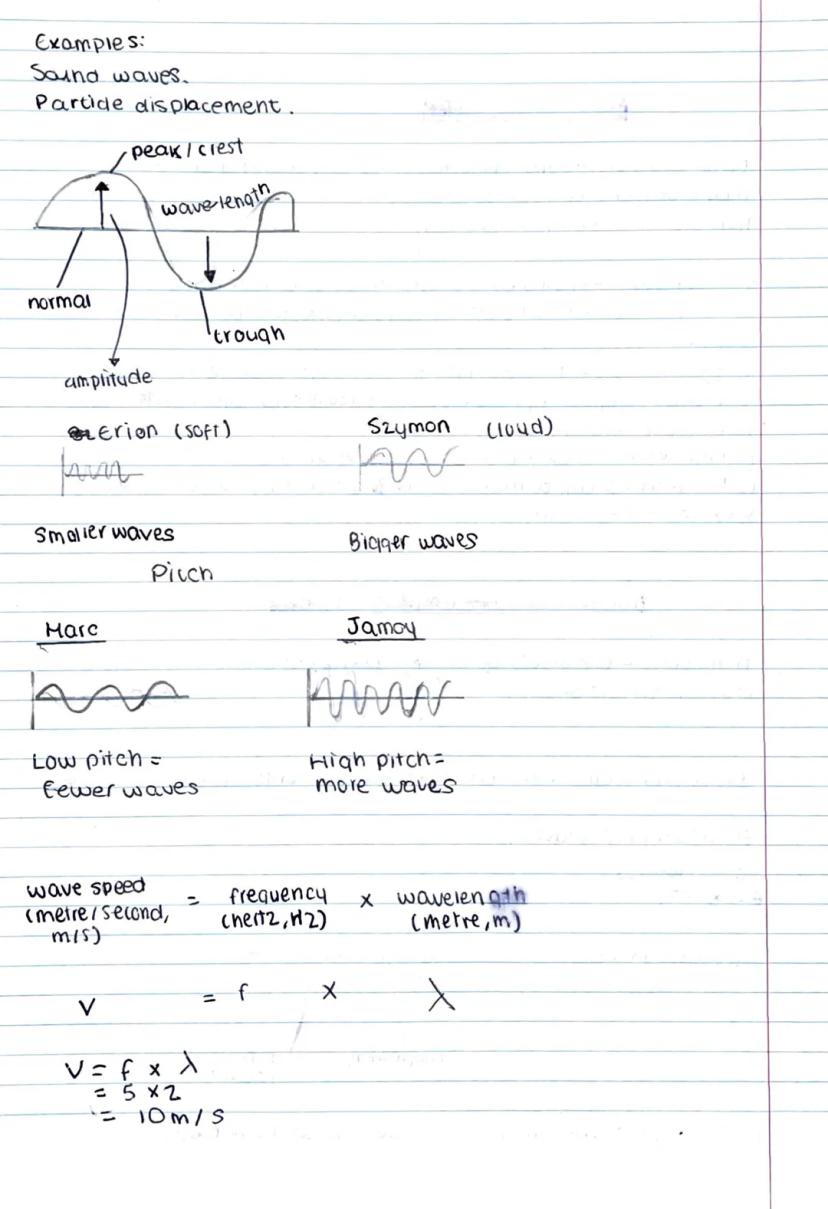 Examples:
Sound waves.
Particle displacement.
peak/crest
wavelength
normal
trough
amplitude
Erion (soft)
Szymon (loud)
Smaller waves
Bigger waves
Pitch
Marc
Jamoy
Low pitch =
fewer waves
High pitch =
more waves
wave speed = frequency x wavelength
(metre/second, (hertz, Hz) (metre, m)
m/s)
V = f x λ
V = f x λ
= 5 x 2
= 10 m/s